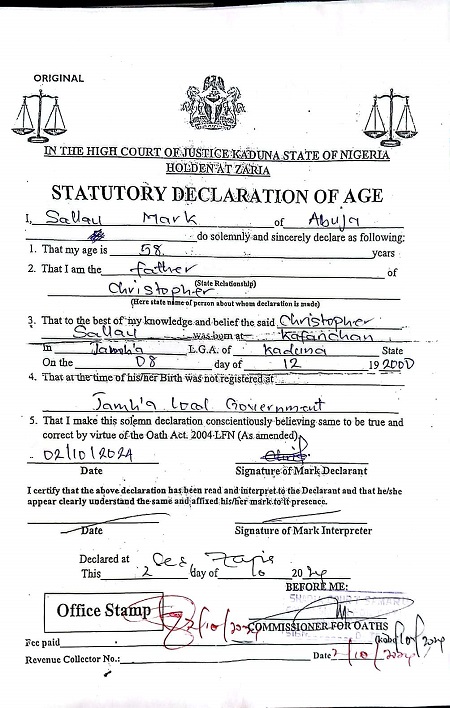 ORIGINAL
IN THE HIGH COURT OF JUSTICE KADUNA STATE OF NIGERIA
HOLDEN AT ZARIA
STATUTORY DECLARATION OF AGE
I, Sallau Mark of Abuja
do solemnly and sincerely declare as following:
1. That my age is 58 years
2. That I am the father of
(State Relationship)
Christopher
(Here state name of person about whom declaration is made)
3. That to the best of my knowledge and belief the said Christopher
Sallau was born at Kafanchan
In Jama'a L.G.A. of Kaduna State
On the 08 day of 12 19 2000
4. That at the time of his/her Birth was not registered at
Jama'a Local Government
5. That I make this solemn declaration conscientiously believing same to be true and
correct by virtue of the Oath Act. 2004 LFN (As amended)
02/10/2024
Date Signature of Mark Declarant
I certify that the above declaration has been read and interpret to the Declarant and that he/she
appear clearly understand the same and affixed his/her mark to it presence.
Date Signature of Mark Interpreter
Declared at Zaria
This 2 day of 10 2024
BEFORE ME:
Office Stamp 2/10/2024 COMMISSIONER FOR OATHS
Fee paid
Revenue Collector No.: Date 2/10/2024